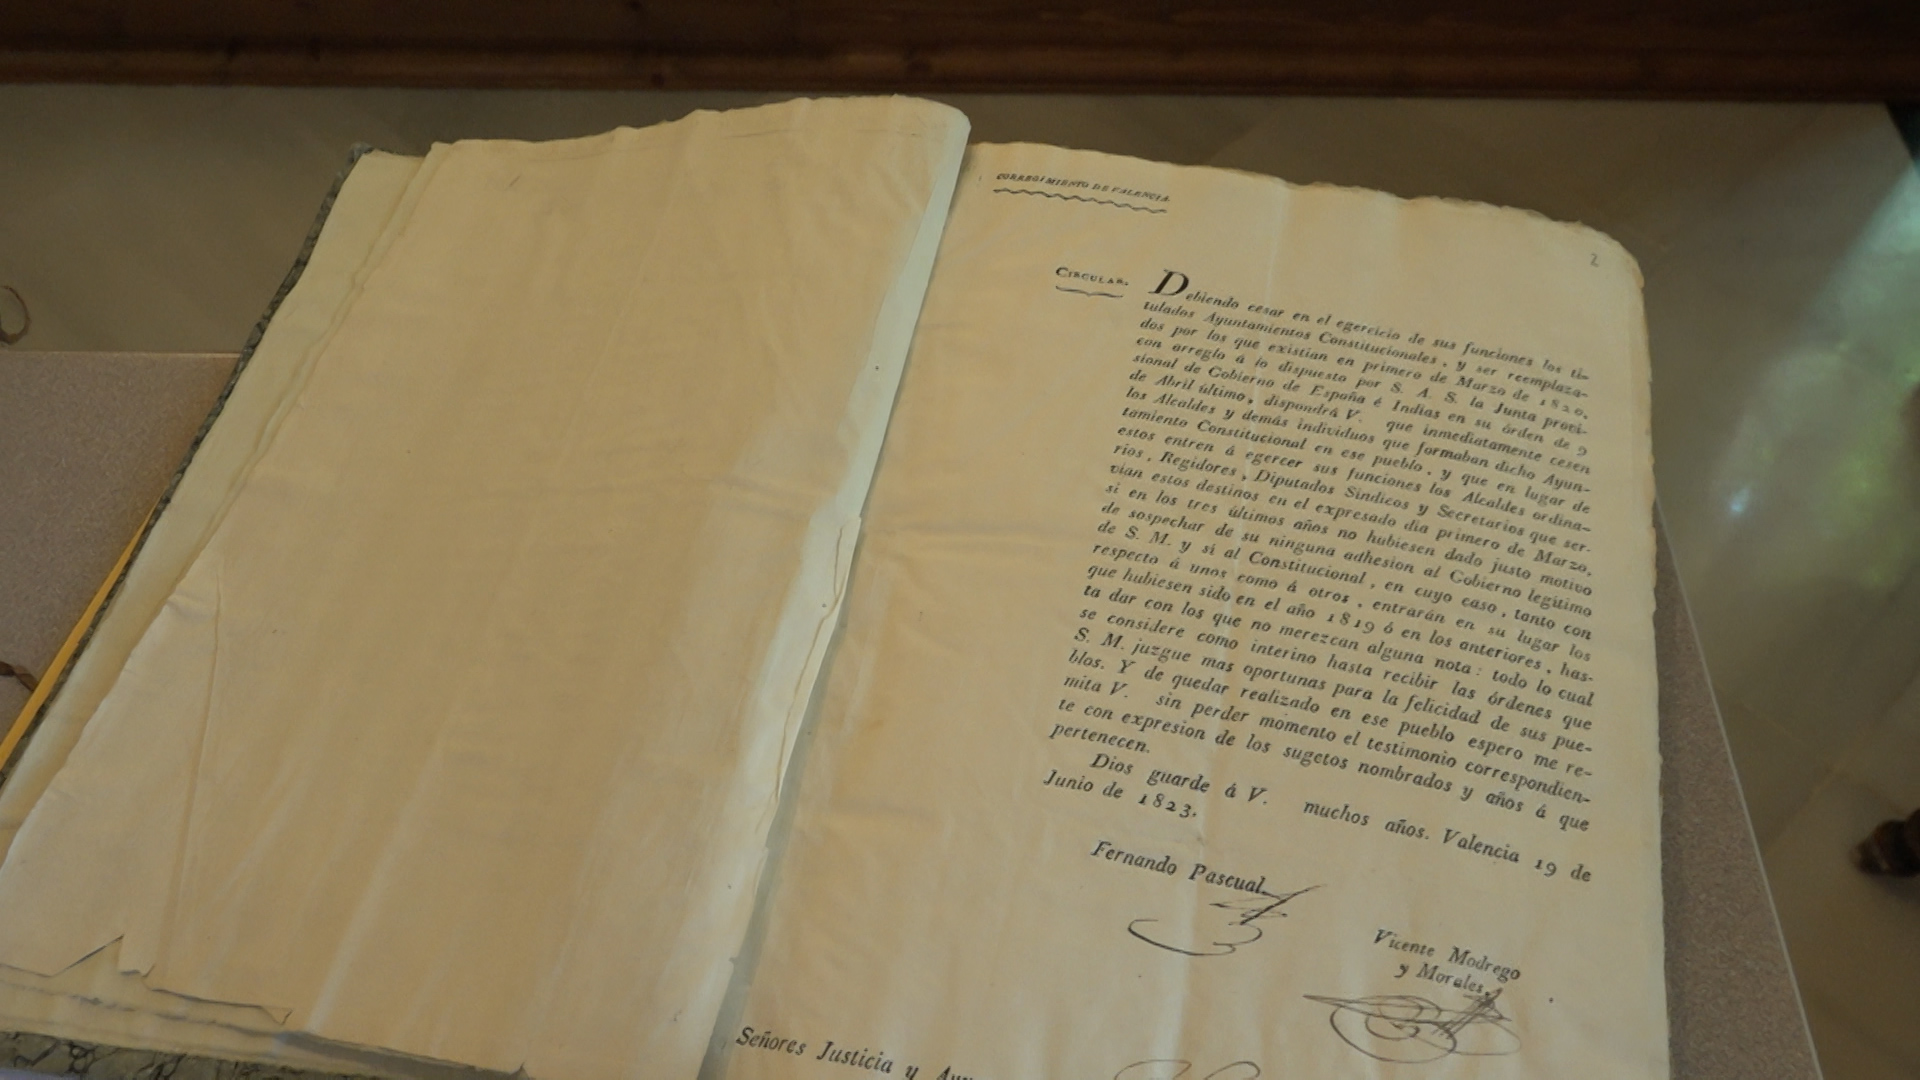 CORREGIMIENTO DE VALENCIA.
2
CIRCULAR.
Debiendo cesar en el egercicio de sus funciones los ti-
tulados Ayuntamientos Constitucionales, y ser reemplaza-
dos por los que existian en primero de Marzo de 1820,
con arreglo á lo dispuesto por S. A. S. la Junta provi-
sional de Gobierno de España é Indias en su órden de 9
de Abril último, dispondrá V. que inmediatamente cesen
los Alcaldes y demás individuos que formaban dicho Ayun-
tamiento Constitucional en ese pueblo, y que en lugar de
estos entren á egercer sus funciones los Alcaldes ordina-
rios, Regidores, Diputados Sindicos y Secretarios que ser-
vian estos destinos en el expresado dia primero de Marzo,
si en los tres últimos años no hubiesen dado justo motivo
de sospechar de su ninguna adhesion al Gobierno legítimo
de S. M. y sí al Constitucional, en cuyo caso, tanto con
respecto á unos como á otros, entrarán en su lugar los
que hubiesen sido en el año 1819 ó en los anteriores, has-
ta dar con los que no merezcan alguna nota: todo lo cual
se considere como interino hasta recibir las órdenes que
S. M. juzgue mas oportunas para la felicidad de sus pue-
blos. Y de quedar realizado en ese pueblo espero me re-
mita V. sin perder momento el testimonio correspondien-
te con expresion de los sugetos nombrados y años á que
pertenecen.
Dios guarde á V. muchos años. Valencia 19 de
Junio de 1823.
Fernando Pascual
Vicente Modrego
y Morales.
Señores Justicia y